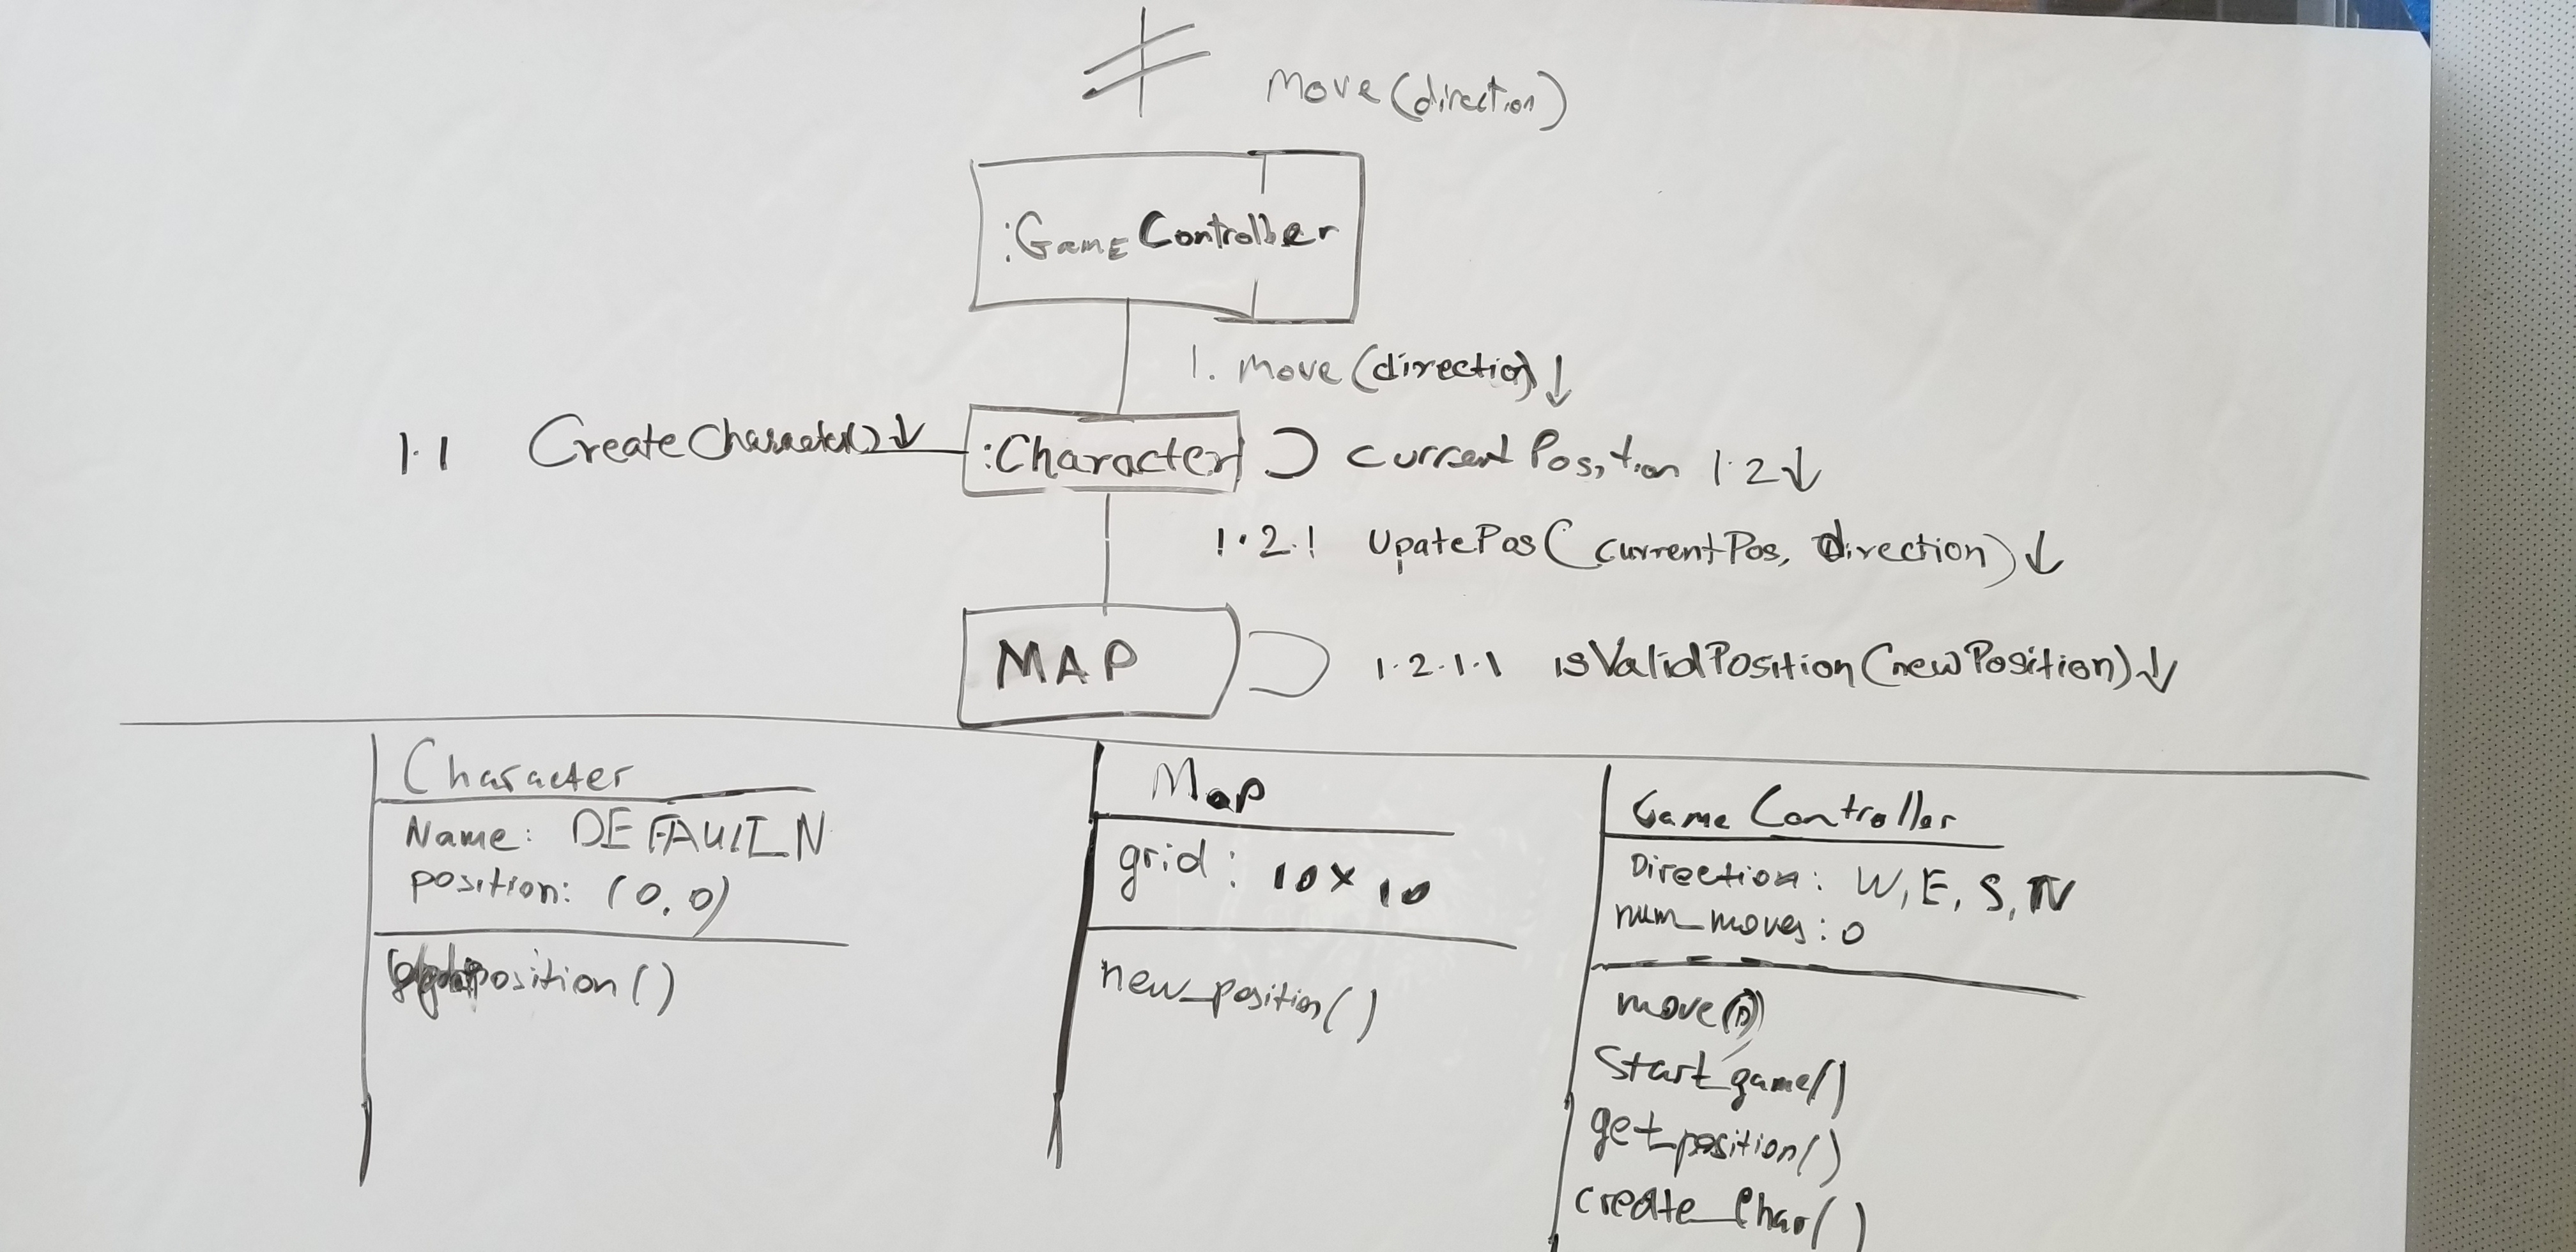 move(direction)
:GamE Controller
1. move(direction)↓
1.1 CreateCharacter()↓
:Character
currentPosition 1.2↓
1.2.1 UpatePos(currentPos, direction)↓
MAP
1.2.1.1 isValidPosition(newPosition)↓
Character
Name: DEFAULT_N
position: (0,0)
position()
Map
grid: 10x10
new_position()
Game Controller
Direction: W, E, S, N
num_moves: 0
move()
Start_game()
get_position()
create_char()